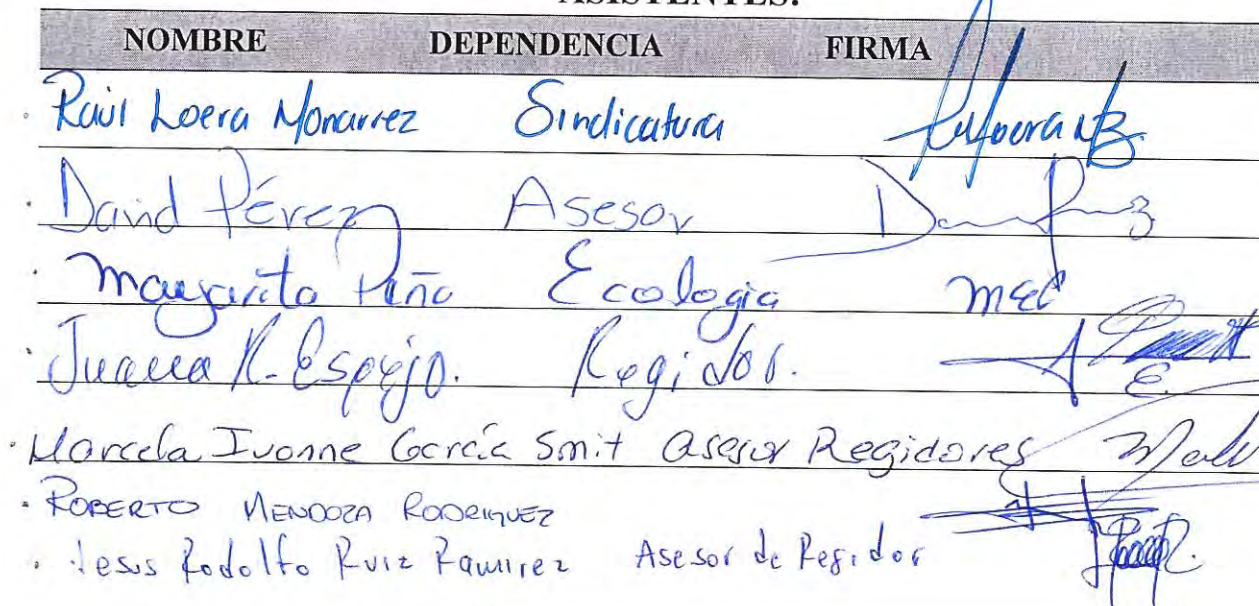 ASISTENTES:
NOMBRE DEPENDENCIA FIRMA
Raúl Loera Monarrez Sindicatura
David Pérez Asesor
Margarita Peña Ecología
Juana R. Espejo. Regidor.
Marcela Ivonne García Smit Asesor Regidores
ROBERTO MENDOZA RODRIGUEZ
Jesus Rodolfo Ruiz Ramirez Asesor de Regidor